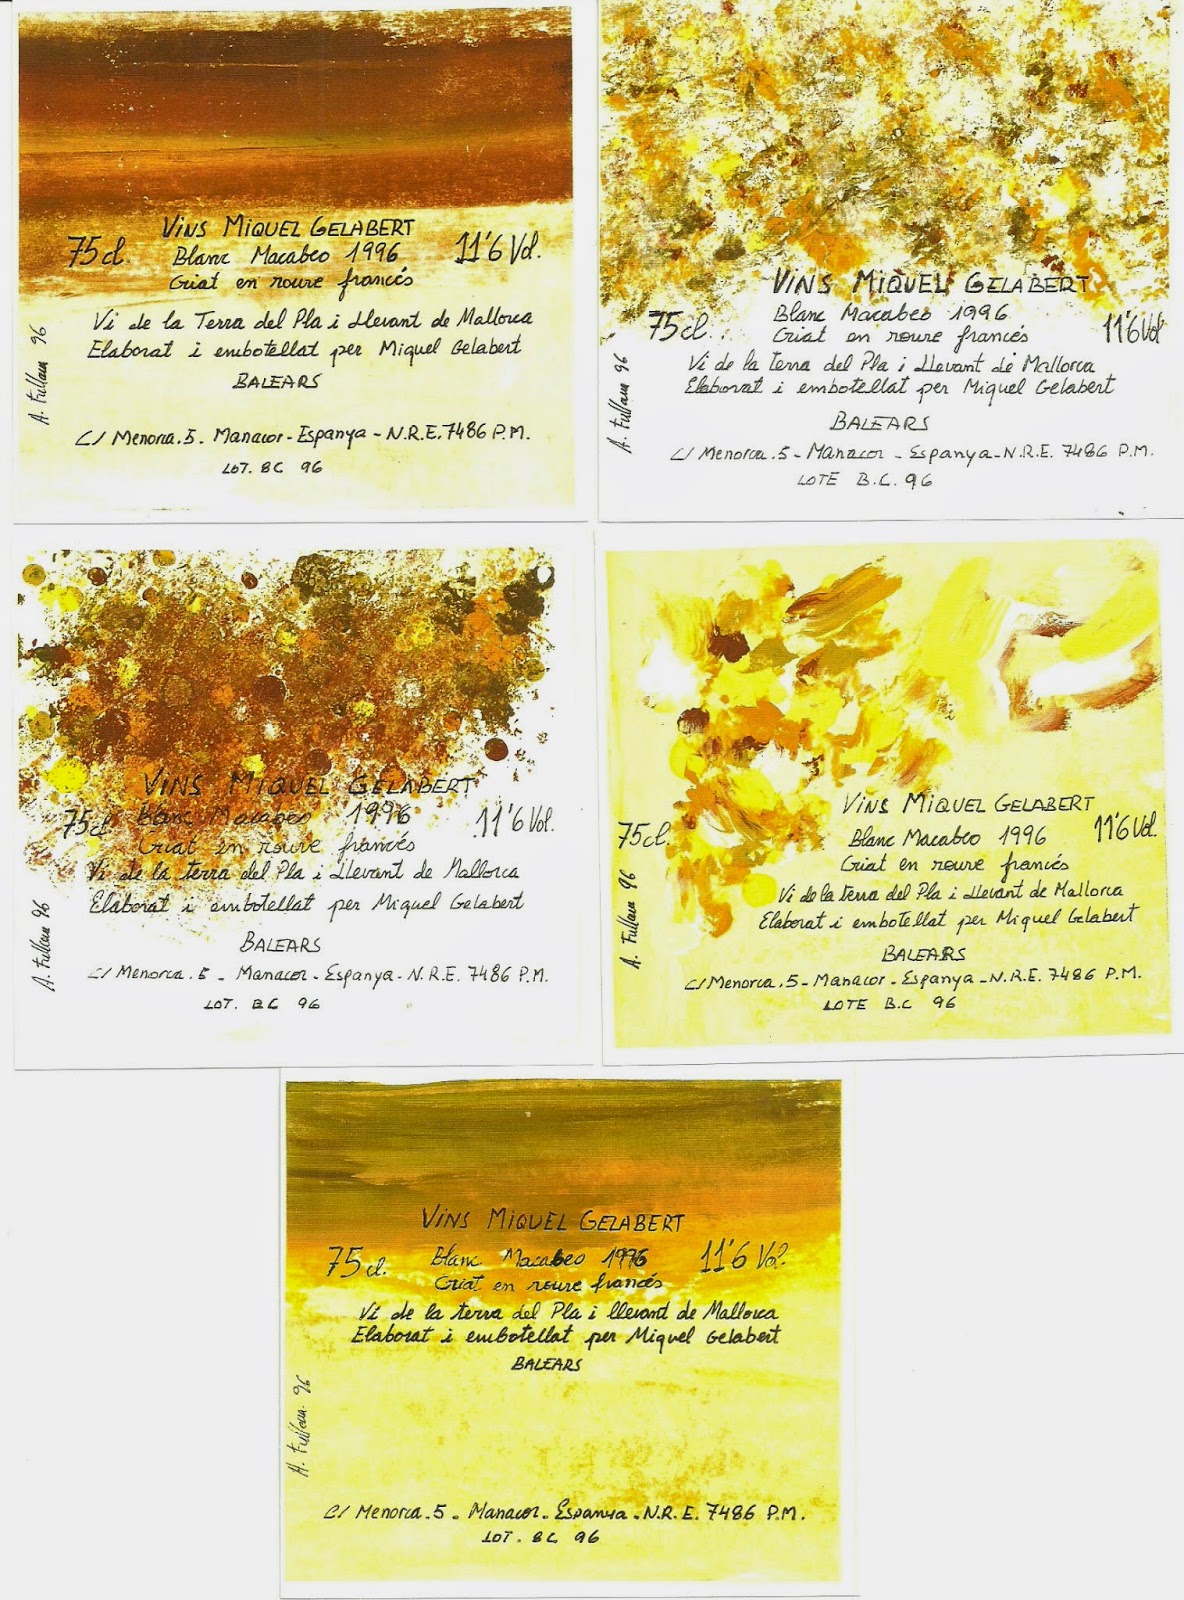 VINS MIQUEL GELABERT
75 cl. Blanc Macabeo 1996 11'6 Vol.
Criat en roure francés
Vi de la Terra del Pla i Llevant de Mallorca
Elaborat i embotellat per Miquel Gelabert
BALEARS
C/ Menorca. 5. Manacor - Espanya - N.R.E. 7486 P.M.
LOT. BC 96
A. Fullana 96
VINS MIQUEL GELABERT
75 cl. Blanc Macabeo 1996 11'6 Vol
Criat en roure francés
Vi de la terra del Pla i Llevant de Mallorca
Elaborat i embotellat per Miquel Gelabert
BALEARS
C/ Menorca. 5 - Manacor - Espanya - N.R.E. 7486 P.M.
LOTE B.C. 96
A. Fullana 96
VINS MIQUEL GELABERT
75 cl. Blanc Macabeo 1996 11'6 Vol.
Criat en roure francés
Vi de la terra del Pla i Llevant de Mallorca
Elaborat i embotellat per Miquel Gelabert
BALEARS
C/ Menorca. 5 - Manacor - Espanya - N.R.E. 7486 P.M.
LOT. BC 96
A. Fullana 96
VINS MIQUEL GELABERT
75 cl. Blanc Macabeo 1996 11'6 Vol.
Criat en roure francés
Vi de la terra del Pla i Llevant de Mallorca
Elaborat i embotellat per Miquel Gelabert
BALEARS
C/ Menorca. 5 - Manacor - Espanya - N.R.E. 7486 P.M.
LOTE B.C 96
A. Fullana 96
VINS MIQUEL GELABERT
75 cl. Blanc Macabeo 1996 11'6 Vol.
Criat en roure francés
Vi de la terra del Pla i llevant de Mallorca
Elaborat i embotellat per Miquel Gelabert
BALEARS
C/ Menorca. 5. Manacor - Espanya - N.R.E. 7486 P.M.
LOT. BC 96
A. Fullana 96